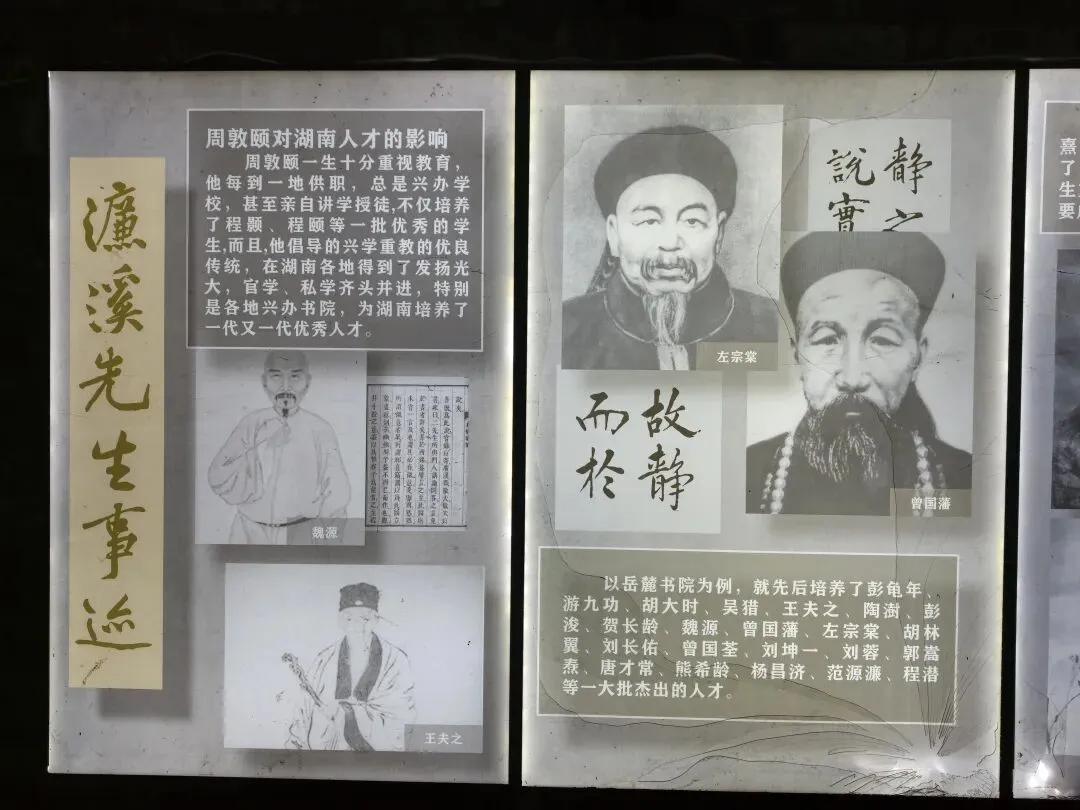 濂溪先生事迹
周敦颐对湖南人才的影响
周敦颐一生十分重视教育，
他每到一地供职，总是兴办学
校，甚至亲自讲学授徒,不仅培养
了程颢、程颐等一批优秀的学
生,而且,他倡导的兴学重教的优良
传统，在湖南各地得到了发扬光
大，官学、私学齐头并进，特别
是各地兴办书院，为湖南培养了
一代又一代优秀人才。
魏源
王夫之
左宗棠
静之
説實
曾国藩
故静
而於
以岳麓书院为例，就先后培养了彭龟年、
游九功、胡大时、吴猎、王夫之、陶澍、彭
浚、贺长龄、魏源、曾国藩、左宗棠、胡林
翼、刘长佑、曾国荃、刘坤一、刘蓉、郭嵩
焘、唐才常、熊希龄、杨昌济、范源濂、程潜
等一大批杰出的人才。
熹
了
生
要